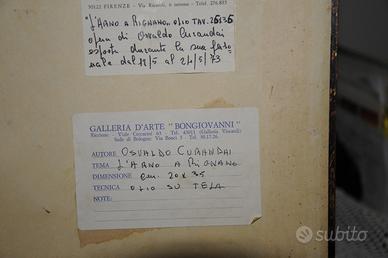 50122 FIRENZE - Via Ricasoli, 6 rosso - Telef. 276.855
"L'ARNO A RIGNANO" olio TAV. 25x35
opera di Osvaldo Curandai
esposto durante la sua perso
nale dal 12/5 al 24/5/73
GALLERIA D'ARTE "BONGIOVANNI"
Riccione: Viale Ceccarini 63 Tel. 43011 (Galleria Viscardi)
Sede di Bologna: Via Bocci 5 Tel. 30.17.26.
AUTORE OSVALDO CURANDAI
TEMA L'ARNO A RIGNANO
DIMENSIONE cm. 20x35
TECNICA olio SU TELA
NOTE:
subito